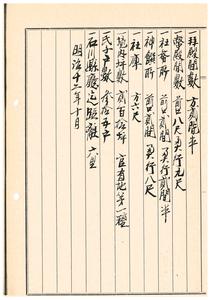 一拝殿間数 方貳間半
一幣殿間数 前口八尺奥行九尺
一社務所 前口貳間奥行貳間半
一神饌所 前口貳間奥行八尺
一社庫 方六尺
一境内坪数 貳百拾坪 官有地第一種
一氏子戸数 拾五戸
一石川縣廳迄距離 六里
明治十二年十月